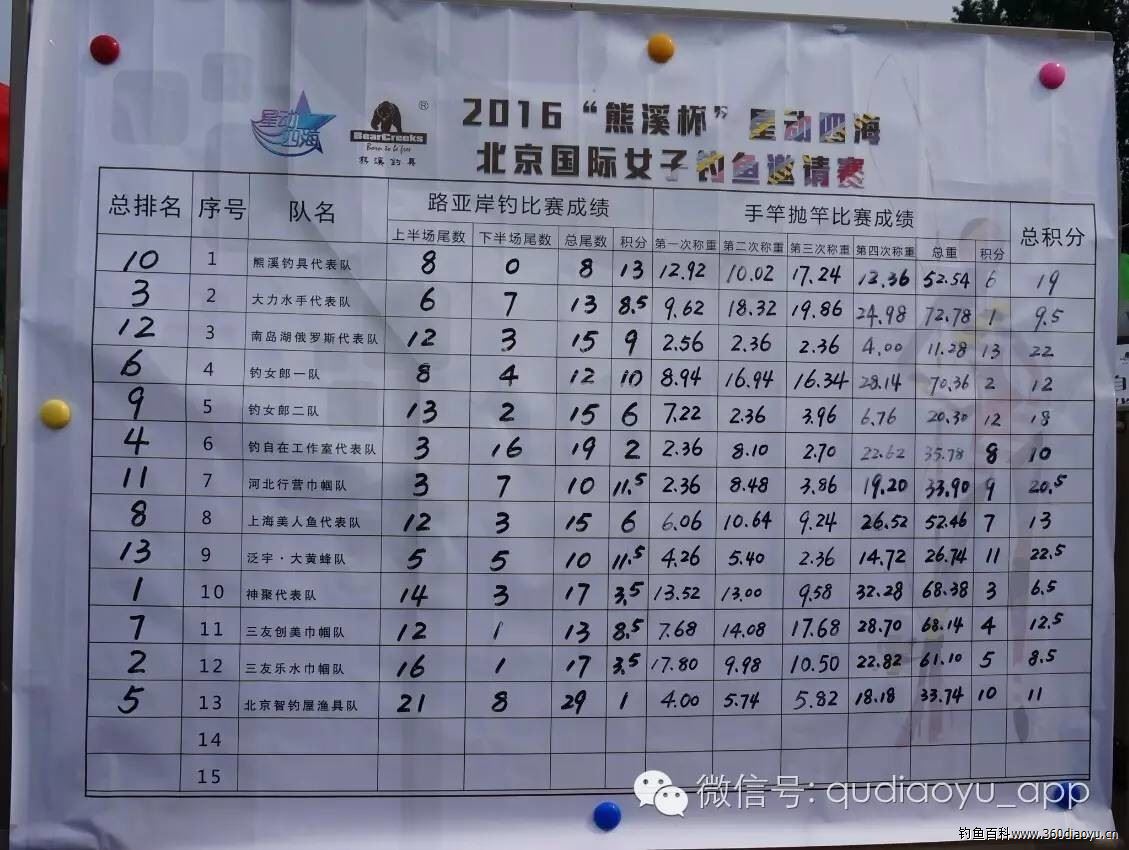 星动四海
BearCreeks®
Born to be free
熊溪钓具
2016“熊溪杯”星动四海
北京国际女子钓鱼邀请赛
总排名 序号 队名 路亚岸钓比赛成绩 手竿抛竿比赛成绩 总积分
上半场尾数 下半场尾数 总尾数 积分 第一次称重 第二次称重 第三次称重 第四次称重 总重 积分
10 1 熊溪钓具代表队 8 0 8 13 12.92 10.02 17.24 12.36 52.54 6 19
3 2 大力水手代表队 6 7 13 8.5 9.62 18.32 19.86 24.98 72.78 1 9.5
12 3 南岛湖俄罗斯代表队 12 3 15 9 2.56 2.36 2.36 4.00 11.28 13 22
6 4 钓女郎一队 8 4 12 10 8.94 16.94 16.34 28.14 70.36 2 12
9 5 钓女郎二队 13 2 15 6 7.22 2.36 3.96 6.76 20.30 12 18
4 6 钓自在工作室代表队 3 16 19 2 2.36 8.10 2.70 22.62 35.78 8 10
11 7 河北行营巾帼队 3 7 10 11.5 2.36 8.48 3.86 19.20 33.90 9 20.5
8 8 上海美人鱼代表队 12 3 15 6 6.06 10.64 9.24 26.52 52.46 7 13
13 9 泛宇·大黄蜂队 5 5 10 11.5 4.26 5.40 2.36 14.72 26.74 11 22.5
1 10 神聚代表队 14 3 17 3.5 13.52 13.00 9.58 32.28 68.38 3 6.5
7 11 三友创美巾帼队 12 1 13 8.5 7.68 14.08 17.68 28.70 68.14 4 12.5
2 12 三友乐水巾帼队 16 1 17 3.5 17.80 9.98 10.50 22.82 61.10 5 8.5
5 13 北京智钓屋渔具队 21 8 29 1 4.00 5.74 5.82 18.18 33.74 10 11
14
15
微信号: qudiaoyu_app
钓鱼百科www.360diaoyu.cn